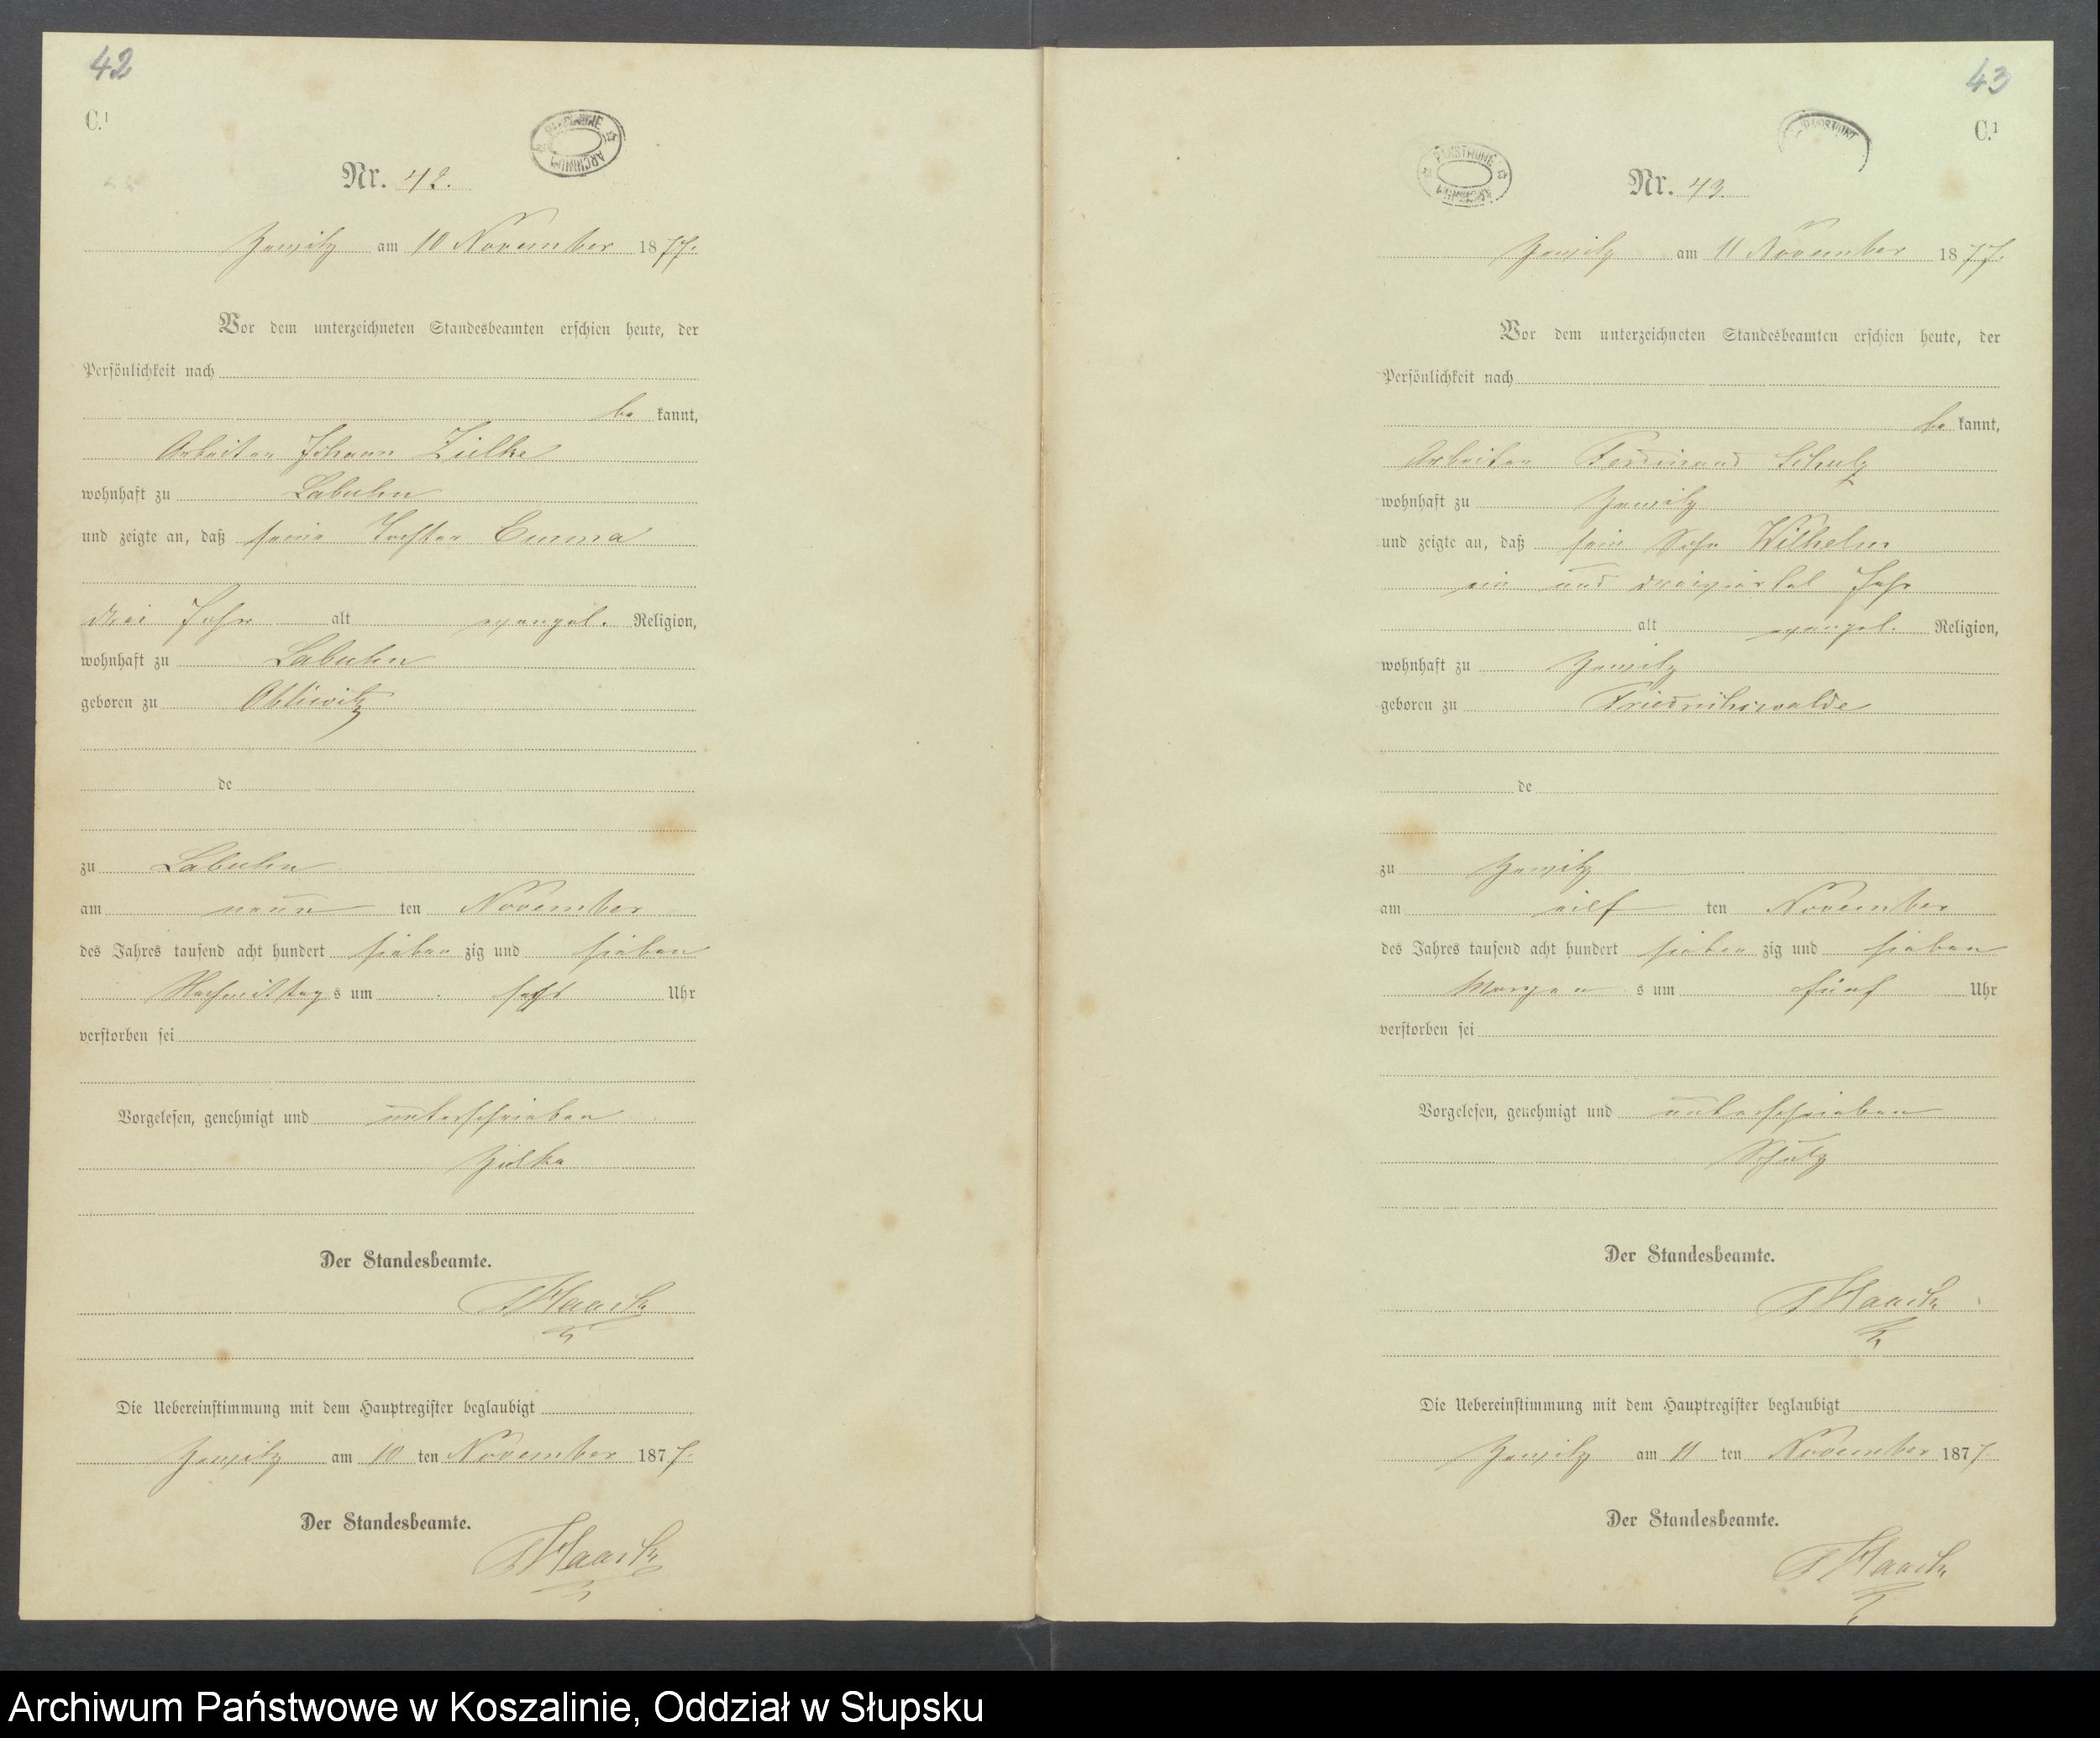 42
C.¹
PAŃSTWOWE ARCHIWUM
Nr. 42.
Zewitz am 10 November 1877.
Vor dem unterzeichneten Standesbeamten erschien heute, der
Persönlichkeit nach
be kannt,
Arbeiter Johann Zielke
wohnhaft zu Labuhn
und zeigte an, daß seine Tochter Emma
drei Jahr alt evangel. Religion,
wohnhaft zu Labuhn
geboren zu Obliwitz
de
zu Labuhn
am neun ten November
des Jahres tausend acht hundert sieben zig und sieben
Nachmittag s um sechs Uhr
verstorben sei
Vorgelesen, genehmigt und unterschrieben
Zielke
Der Standesbeamte.
Haack
Die Uebereinstimmung mit dem Hauptregister beglaubigt
Zewitz am 10 ten November 1877.
Der Standesbeamte.
Haack
43
C.¹
PAŃSTWOWE ARCHIWUM
Nr. 43.
Zewitz am 11 November 1877.
Vor dem unterzeichneten Standesbeamten erschien heute, der
Persönlichkeit nach
be kannt,
Arbeiter Ferdinand Schulz
wohnhaft zu Zewitz
und zeigte an, daß sein Sohn Wilhelm
ein und dreiviertel Jahr
alt evangel. Religion,
wohnhaft zu Zewitz
geboren zu Friedrichswalde
de
zu Zewitz
am eilf ten November
des Jahres tausend acht hundert sieben zig und sieben
Morgen s um fünf Uhr
verstorben sei
Vorgelesen, genehmigt und unterschrieben
Schulz
Der Standesbeamte.
Haack
Die Uebereinstimmung mit dem Hauptregister beglaubigt
Zewitz am 11 ten November 1877
Der Standesbeamte.
Haack
Archiwum Państwowe w Koszalinie, Oddział w Słupsku